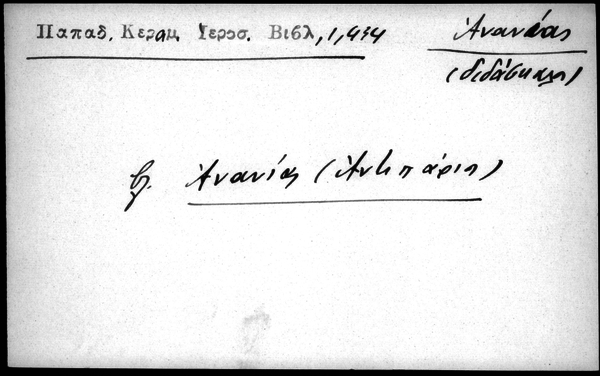 Παπαδ. Κεραμ. Ιεροσ. Βιβλ, 1, 434
Ἀνανίας
(διδάσκαλος)
βλ. Ἀνανίας (Ἀντιπάριος)